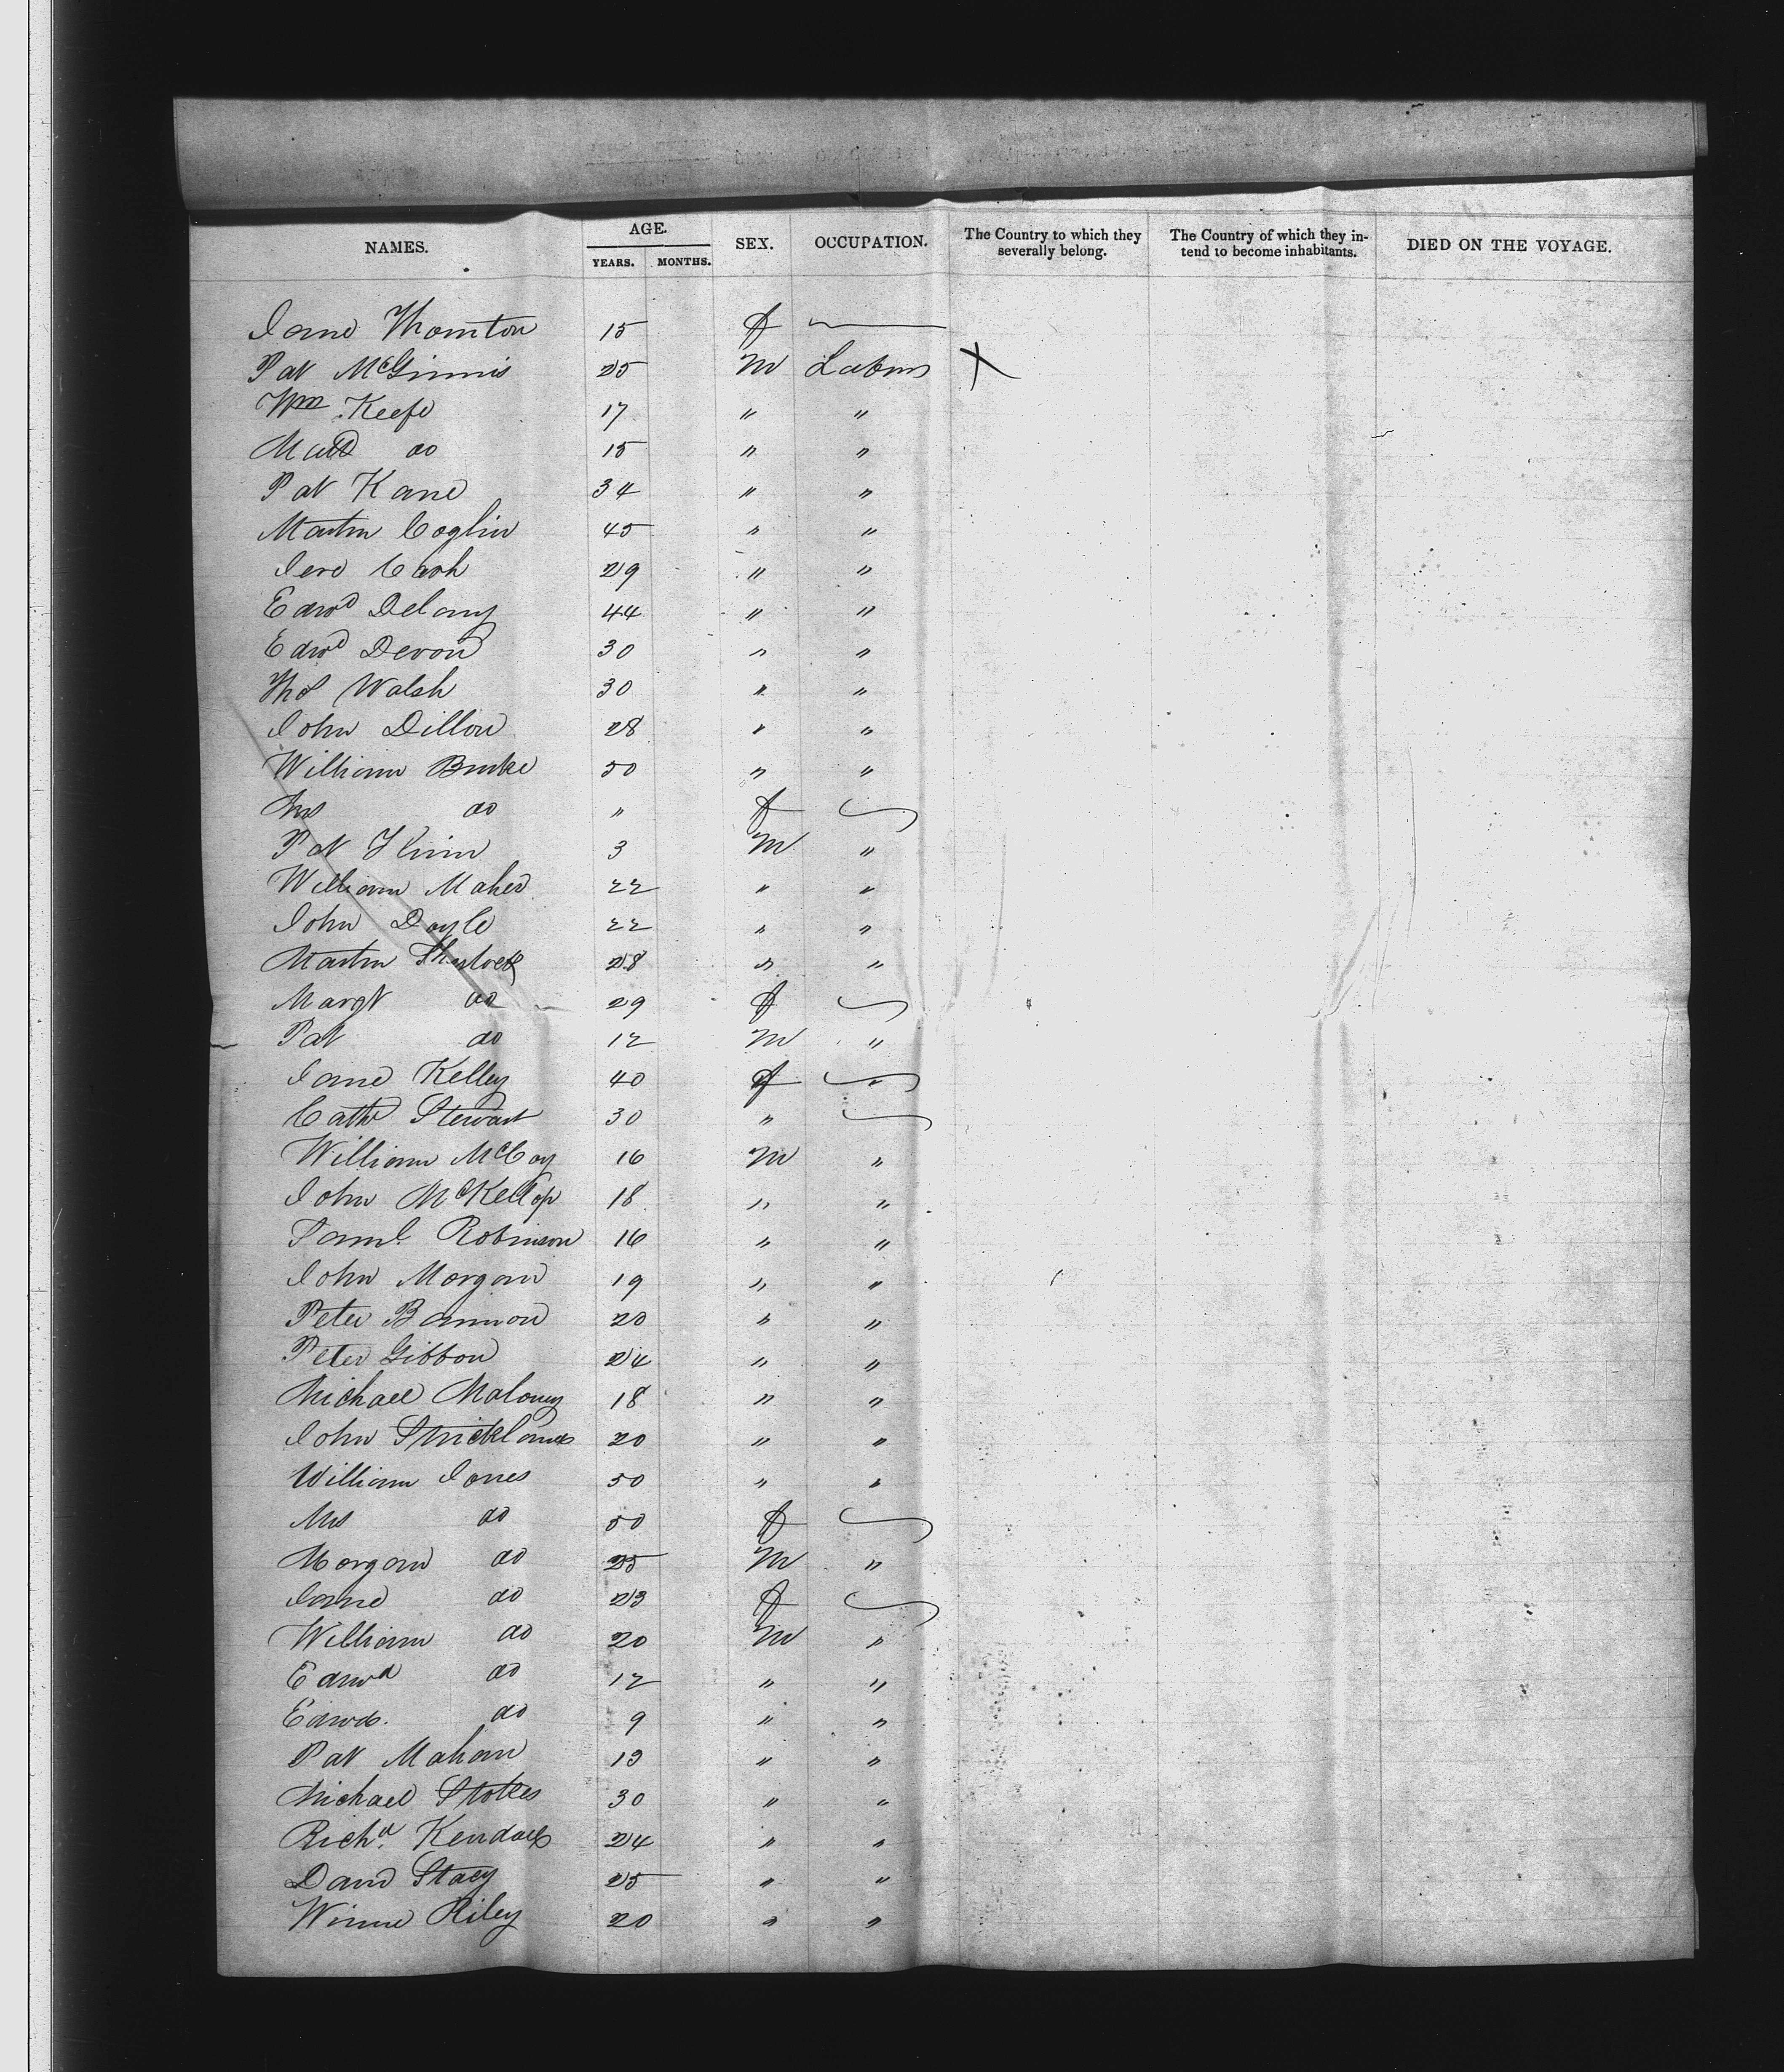 NAMES. AGE. YEARS. MONTHS. SEX. OCCUPATION. The Country to which they severally belong. The Country of which they intend to become inhabitants. DIED ON THE VOYAGE.
Jane Thornton 15 f
Pat McGinnis 25 M Labour X
Wm Keefe 17 " "
Matt do 15 " "
Pat Kane 34 " "
Martin Coglin 45 " "
Jere Cash 29 " "
Edwd Delany 44 " "
Edwd Devon 30 " "
Thos Walsh 30 " "
John Dillon 28 " "
William Burke 50 " "
Mrs do " f
Pat Flinn 3 M "
William Maher 22 " "
John Doyle 22 " "
Martin 28 " "
Margt do 29 f
Pat do 12 M "
Jane Kelley 40 f "
Cathe Stewart 30 "
William McCoy 16 M "
John McKellop 18 " "
Saml. Robinson 16 " "
John Morgan 19 " "
Peter Bannon 20 " "
Peter Gibbon 24 " "
Michael Maloney 18 " "
John Strickland 20 " "
William Jones 50 " "
Mrs do 50 f
Morgan do 25 M "
Jane do 23 f
William do 20 M "
Edwd do 12 " "
Edwd. do 9 " "
Pat Mahan 13 " "
Michael Stokes 30 " "
Richd. Kendall 24 " "
David Stacy 25 " "
Winne Riley 20 " "